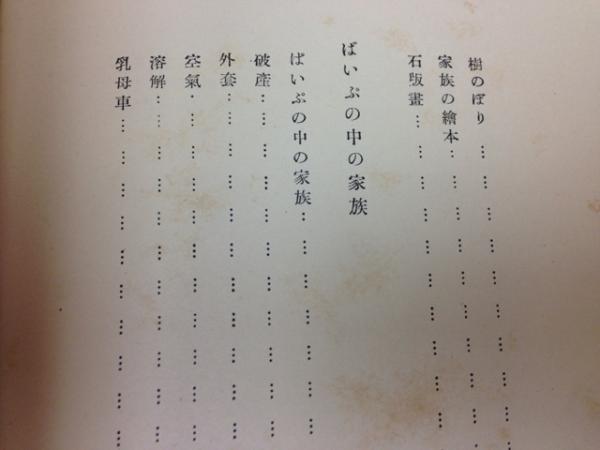 樹のぼり… … … … … … … …
家族の繪本… … … … … … …
石版畫… … … … … … … …
ぱいぷの中の家族
ぱいぷの中の家族… … … … … …
破産… … … … … … … …
外套… … … … … … … …
空氣… … … … … … … …
溶解… … … … … … … …
乳母車… … … … … … … …